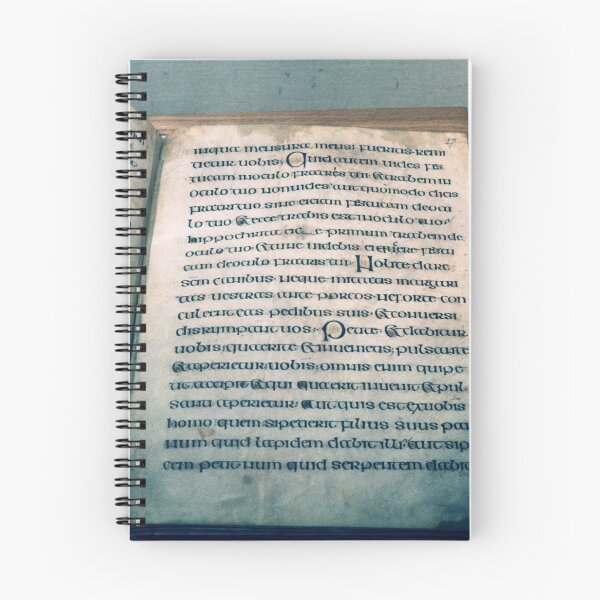 inqua mensura mensi fueritis remi
tietur uobis· Quid autem uides fis
tucam inoculo fratris tui & trabem in
oculo tuo nonuides aut quomodo dicis
fratri tuo sine eiciam fistucam deocu
lo tuo & ecce trabis est inoculo tuo·
hippochrita primum trabem de
oculo tuo· & tunc uidebis eicere fistu
cam deoculo fratris tui· Nolite dare
scm canibus· neque mittatis margari
tas uestras ante porcos· neforte con
culcent eas pedibus suis· & conuersi
disrumpant uos· Petite & dabitur
uobis· quaerite & inuenietis· pulsate
& aperietur uobis· omnis enim quipe
tit accipit & qui quaerit inuenit & pul
santi aperietur· Aut quis est exuobis
homo quem sipetierit filius suus pa
num quid lapidem dabit illi· aut sip
cem petit num quid serpentem dabit